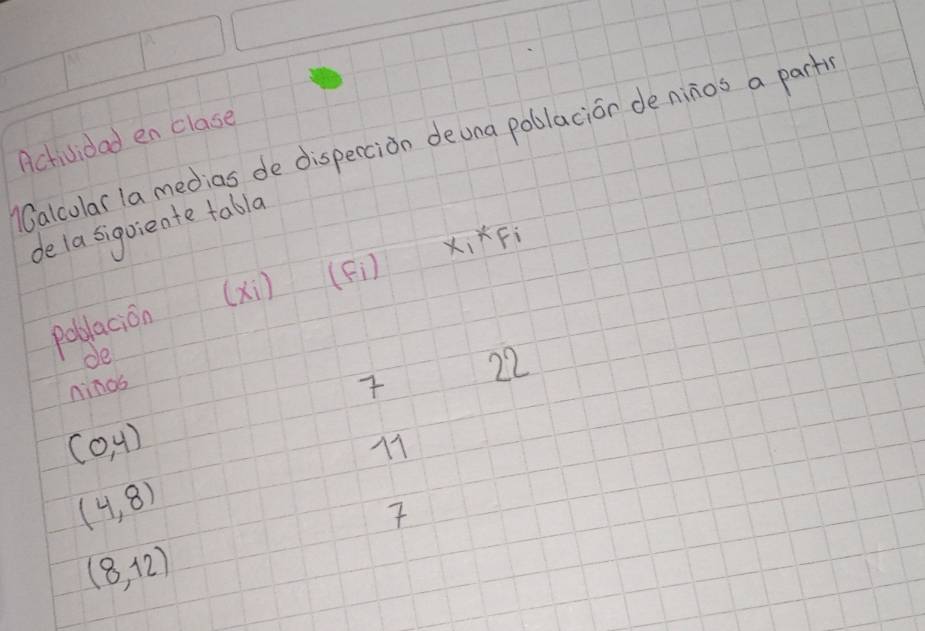 Actividad en clase
1Calcular la medias de disperción de una población de niños a partir
de la siguiente tabla
población (xi) (fi) xi*Fi
de
niños
(0,4) 7 22
(4,8) 11
(8,12) 7